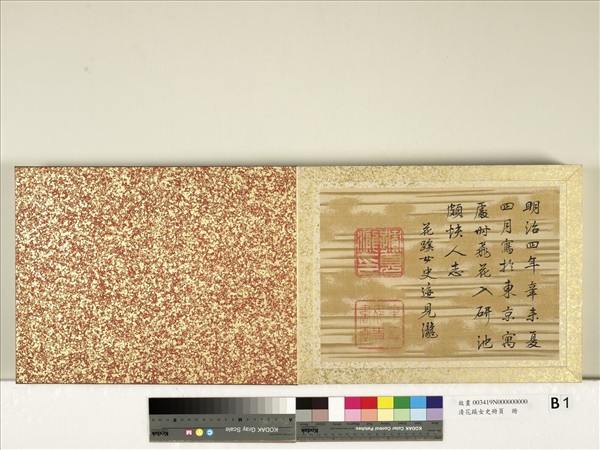 明治四年辛未夏
四月寫於東京寓
處時飛花入研池
頗快人志
花蹊女史迹見瀧
故畫 003419N000000000
清花蹊女史冊頁 冊
B1
KODAK Gray Scale
KODAK Color Control Patches
Kodak